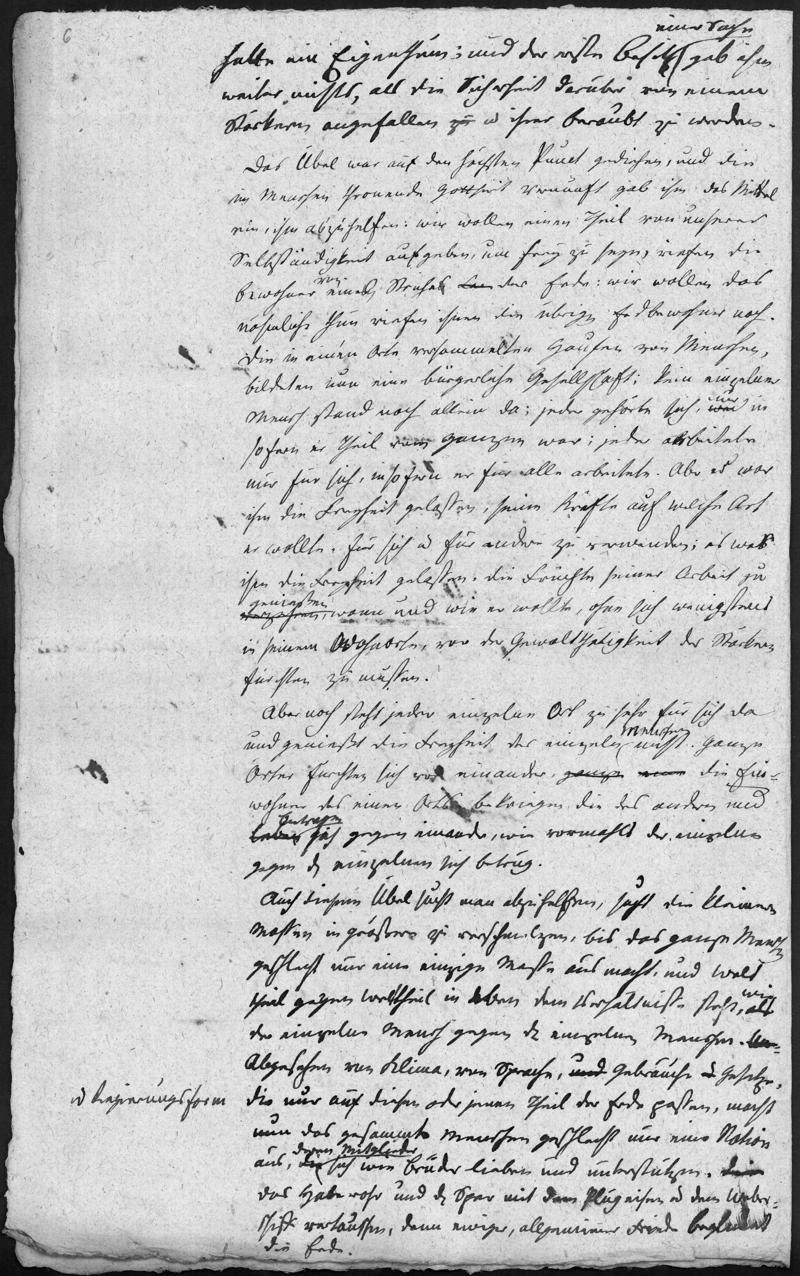 6
einer Sache
hatte ein Eigenthum; und der erste Besitz gab ihm
weiter nichts, als die Sicherheit darüber von einem
Stärkern angefallen zu u ihrer beraubt zu werden.
Das Übel war auf den höchsten Punct gediehen, und die
im Menschen thronende Gottheit Vernunft gab ihm das Mittel
ein, ihm abzuhelfen: wir wollen einen Theil von unserer
Selbständigkeit aufgeben, um frey zu seyn, riefen die
von
Bewohner eines Striches der Erde: wir wollen das
nähmliche thun riefen ihnen die übrigen Erdbewohner nach.
Die in einem Orte versammelten Haufen von Menschen,
bildeten nun eine bürgerliche Gesellschaft; kein einzelner
nur
Mensch stand noch allein da; jeder gehörte sich, in
sofern er Theil vom ganzen war; jeder arbeitete
nur für sich, insofern er für alle arbeitete. Aber es war
ihm die Freyheit gelassen, seine Kräfte auf welche Art
er wollte, für sich u für andere zu verwenden; es war
ihm die Freyheit gelassen, die Früchte seiner Arbeit zu
genießen
verzehren wann und wie er wollte, ohne sich wenigstens
in seinem Wohnorte, vor der Gewaltthätigkeit des Stärkern
fürchten zu müssen.
Aber noch steht jeder einzelne Ort zu sehr für sich da
Menschen
und genießt die Freyheit des einzeln nicht. Ganze
Örter fürchten sich vor einander, ganze die Ein-
wohner des einen Orts bekriegen die des andern und
betragen
sich gegen einander, wie vormahls der einzelne
gegen d einzelnen sich betrug.
Auch diesem Übel sucht man abzuhelfen, sucht die kleinern
Massen in größere zu verschmelzen, bis das ganze Mensch
geschlecht nur eine einzige Masse aus macht, und Welt
wie
theil gegen Welttheil in eben dem Verhältnisse steht, als
der einzelne Mensch gegen d einzelnen Menschen.
Abgesehen von Klima, von Sprache, und Gebräuche u Gesetze,
u Regierungsform
die nur auf diesen oder jenen Theil der Erde passen, macht
nun das gesammte Menschen geschlecht nur eine Nation
deren Mitglieder
aus, die sich wie Brüder lieben und unterstützen. die
das Habe rohr und d Sper mit dem Plugeisen u dem Weber-
schiff vertauschen, denn ewiger, allgemeiner Friede beglückt
die Erde.